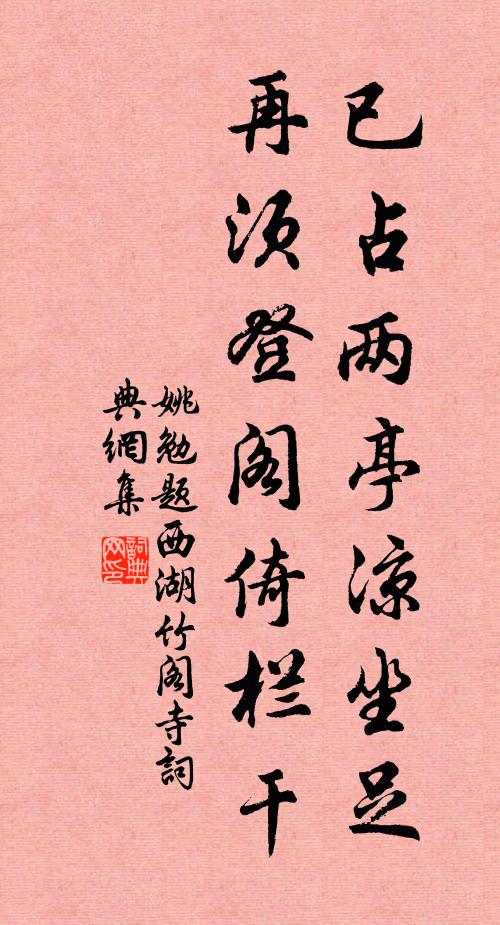 已占两亭凉坐足
再须登阁倚栏干
姚勉题西湖竹阁寺詞
典網集
詞典
网印